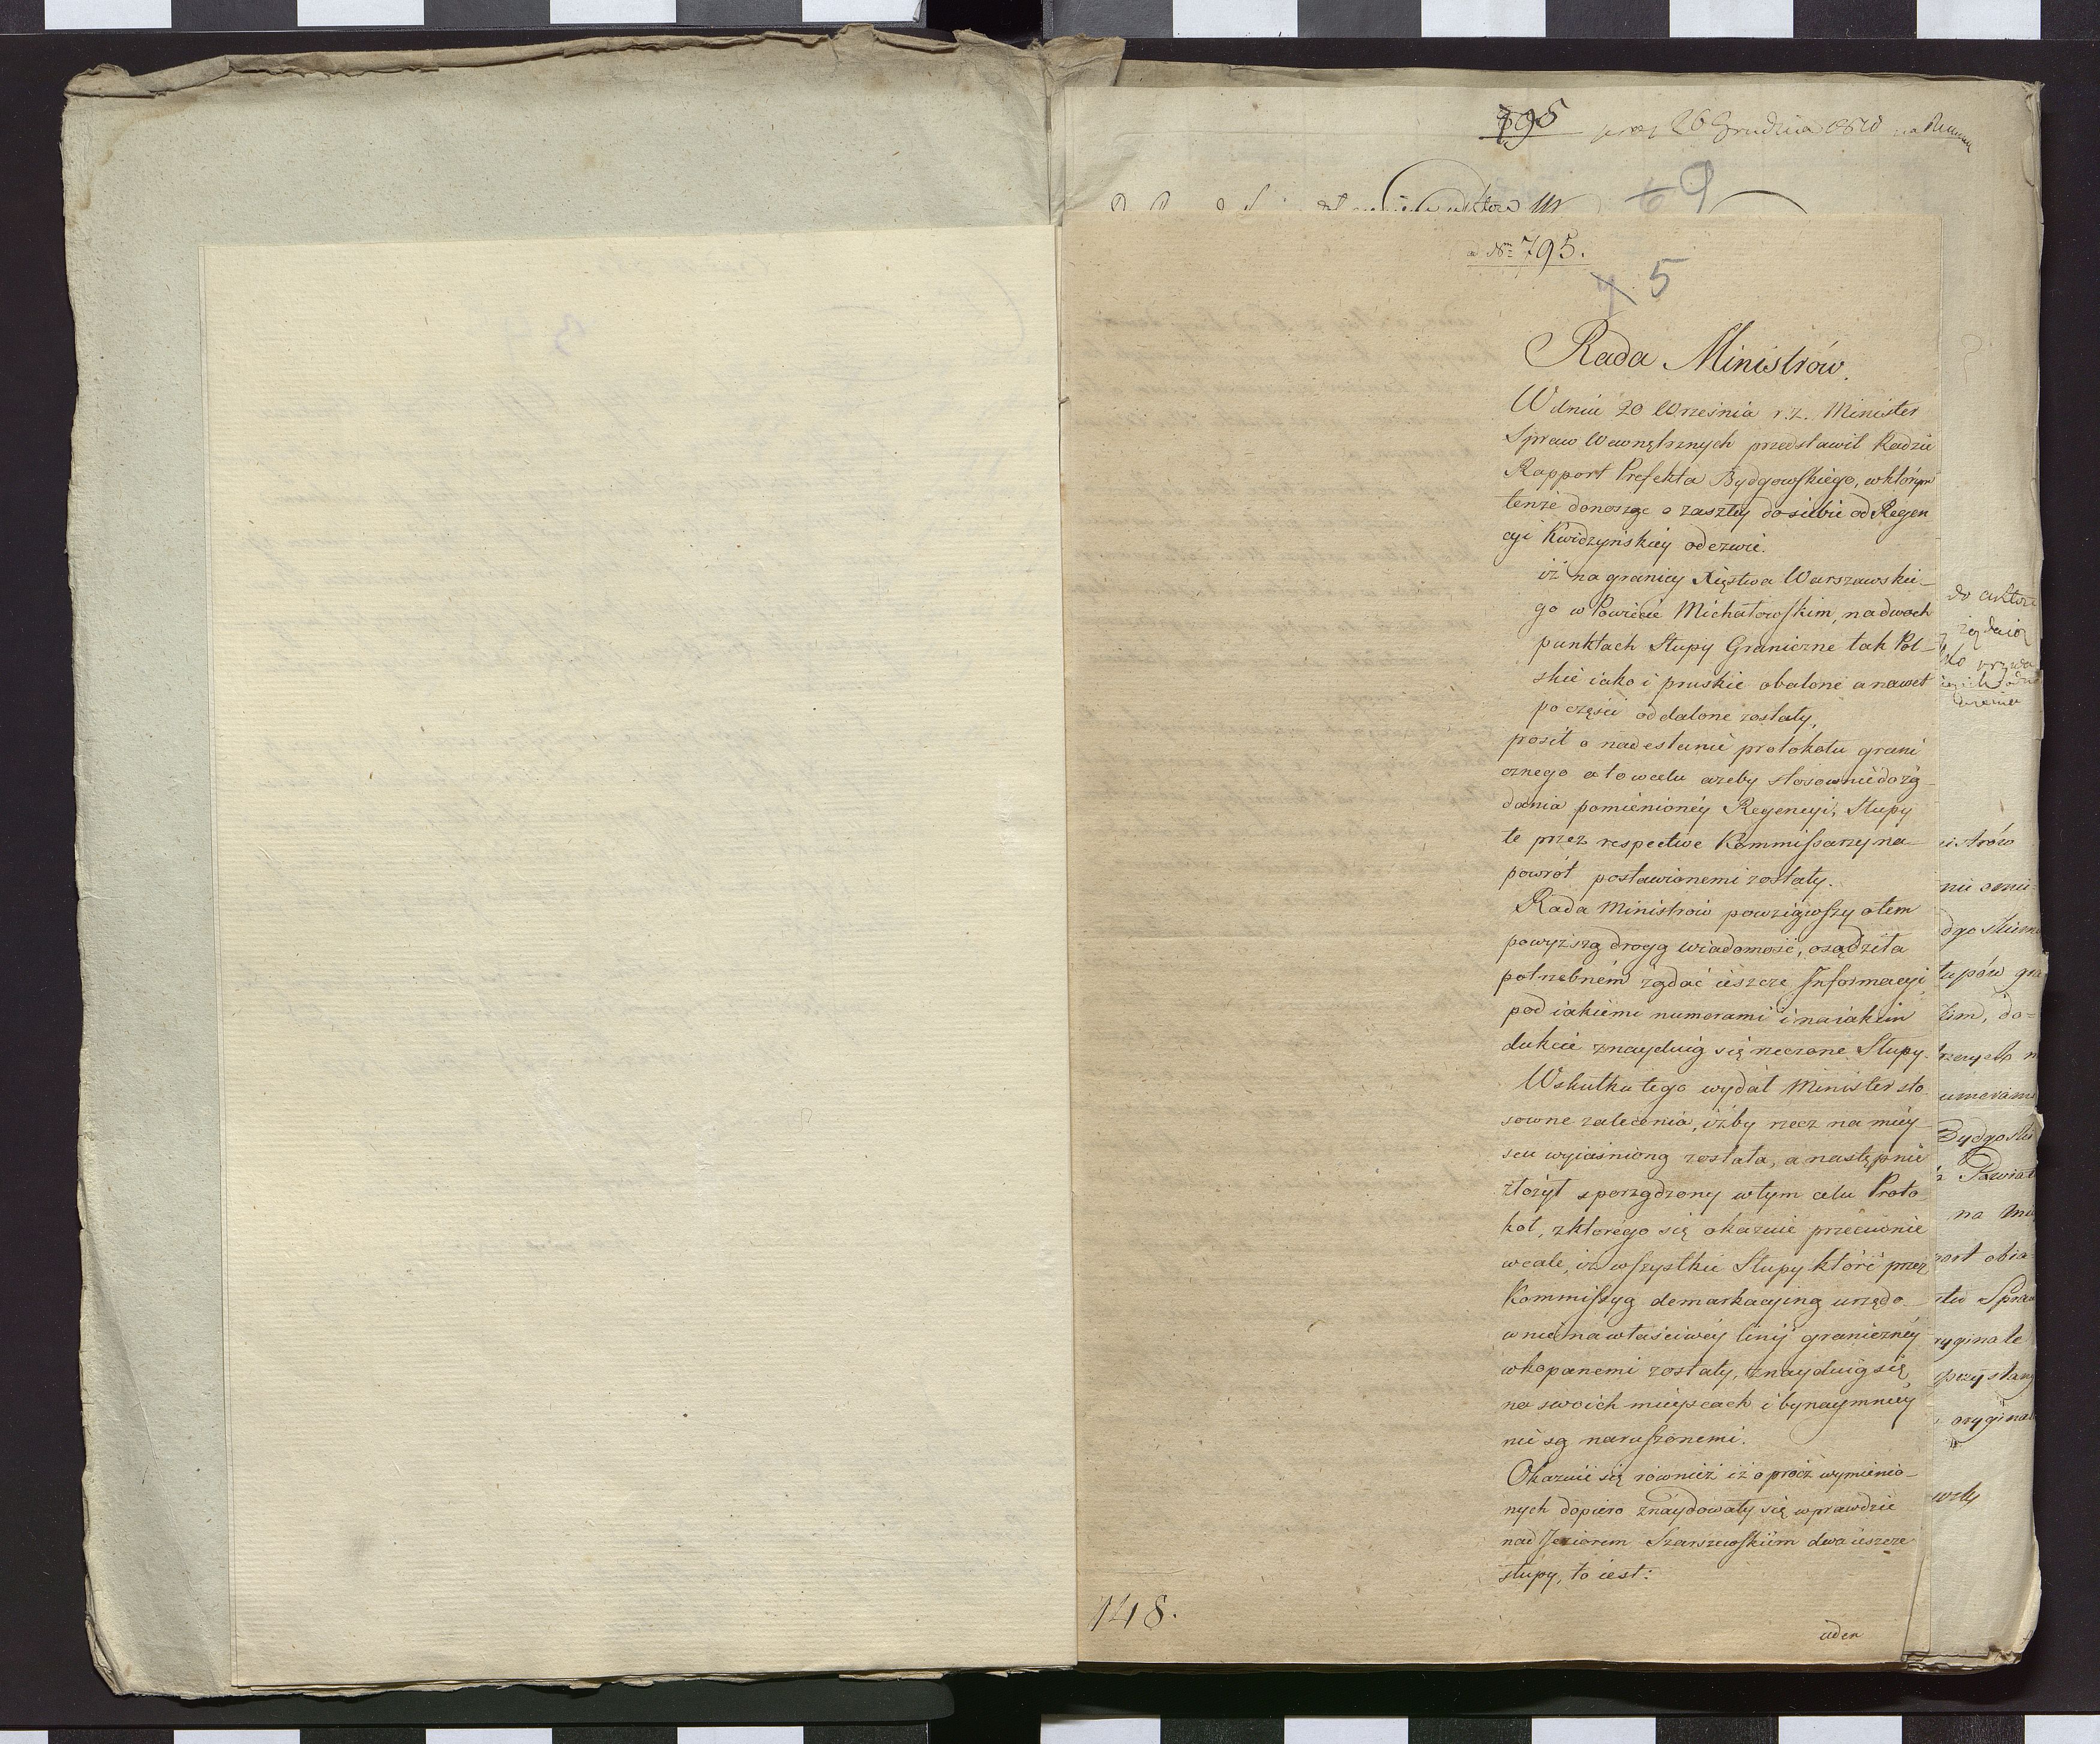 795 26 Grudnia 1810 na
69
ad No 795.
7 5
Rada Ministrów
W dniu 20 Września r. z. Minister
Spraw Wewnętrznych przedstawił Radzie
Rapport Prefekta Bydgowskiego, w którym
tenże donosząc o zaszłey do siebie od Regen
cyi Kwidzyńskiey odezwie.
iż na granicy Xięstwa Warszawskie-
go w Powiecie Michałowskim, na dwóch
punktach Słupy Graniczne tak Pol-
skie iako i pruskie obalone a nawet
po części oddalone zostały,
prosił o nadesłanie protokołu grani
cznego a to w celu ażeby stosownie do żą-
dania pomienioney Regencyi, Słupy
te przez respective Kommissarzy na-
powrót postawionemi zostały.
Rada Ministrów powziąwszy o tem
powyższą drogą wiadomość, osądziła
potrzebném żądać ieszcze Informacyi,
pod iakiemi numerami i na iakim
dukcie znayduią się rzeczone Słupy.
W skutku tego wydał Minister sto
sowne zalecenia, iżby rzecz na miey-
scu wyiaśnioną została, a następnie
złożył sporządzony w tym celu Proto
kół, z którego się okazuie przeciwnie
wcale, iż wszystkie Słupy które przez
Kommissyą demarkacyiną urzędo-
wnie na właściwéy linij granicznéy
wkopanemi zostały, znayduią się
na swoich mieyscach i bynaymniey
nie są naruszonemi.
Okazuie się również iż oprócz wymienio-
nych dopiero znaydowały się wprawdzie
nad Jeziorem Szarszewskiém dwa ieszcze
słupy, to iest:
148.
ieden
do aktów
istrów
nie omie
dgoskiem
łupów gra
kim, do=
umerami
Bydgoski
Powiat
na mie
port obia
stw Spraw
ryginale
oryginal